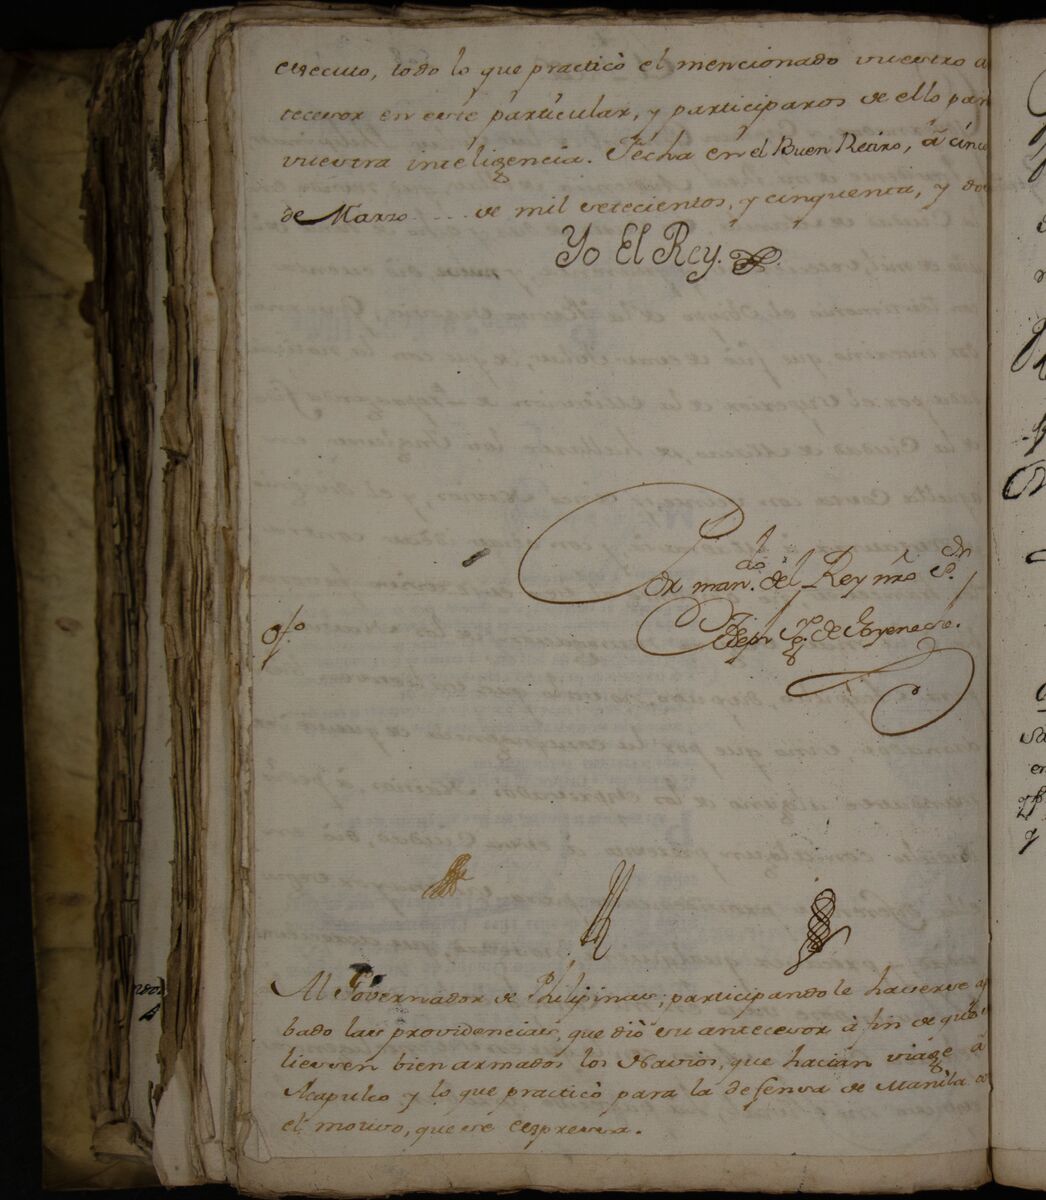 executo, todo lo que practicò el mencionado vuestro a
tecesor en este particular, y participaros de ello para
vuestra inteligencia. Fecha en el Buen Retiro, â cinco
de Marzo .... de mil setecientos, y cinquenta, y dos
Yo El Rey.
Por man.do del Rey nrô S.or
Joseph Ig.o de Goyeneche.
g.fo
Al Governador de Philipinas; participandole haverse ap
bado las providencias, que diò su antecesor à fin de que
lleven bien armados los Navios, que hacian viage à
Acapulco y lo que practicò para la defensa de Manila co
el motivo, que se expressa.